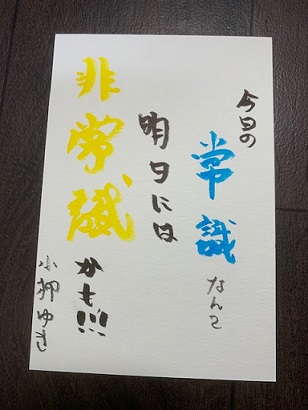 今日の
常識なんて
明日には
非常識かも!!!
小柳ゆき